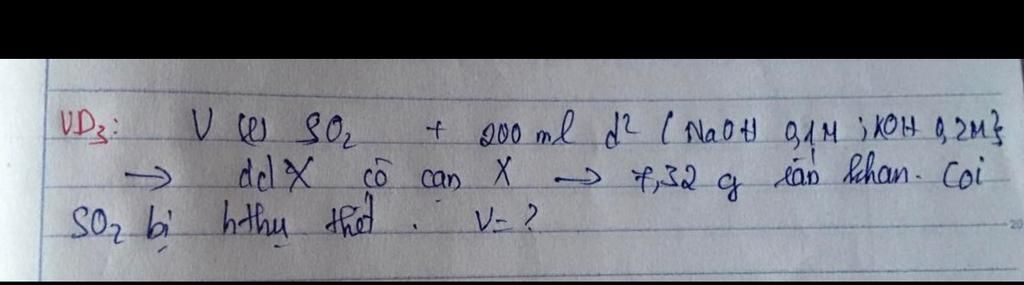 VD3: V (l) SO2 + 200 ml d2 { NaOH 0,1M ; KOH 0,2M }
→ dd X cô cạn X → 7,32 g rắn khan. Coi
SO2 bị h-thụ hết. V=?
20